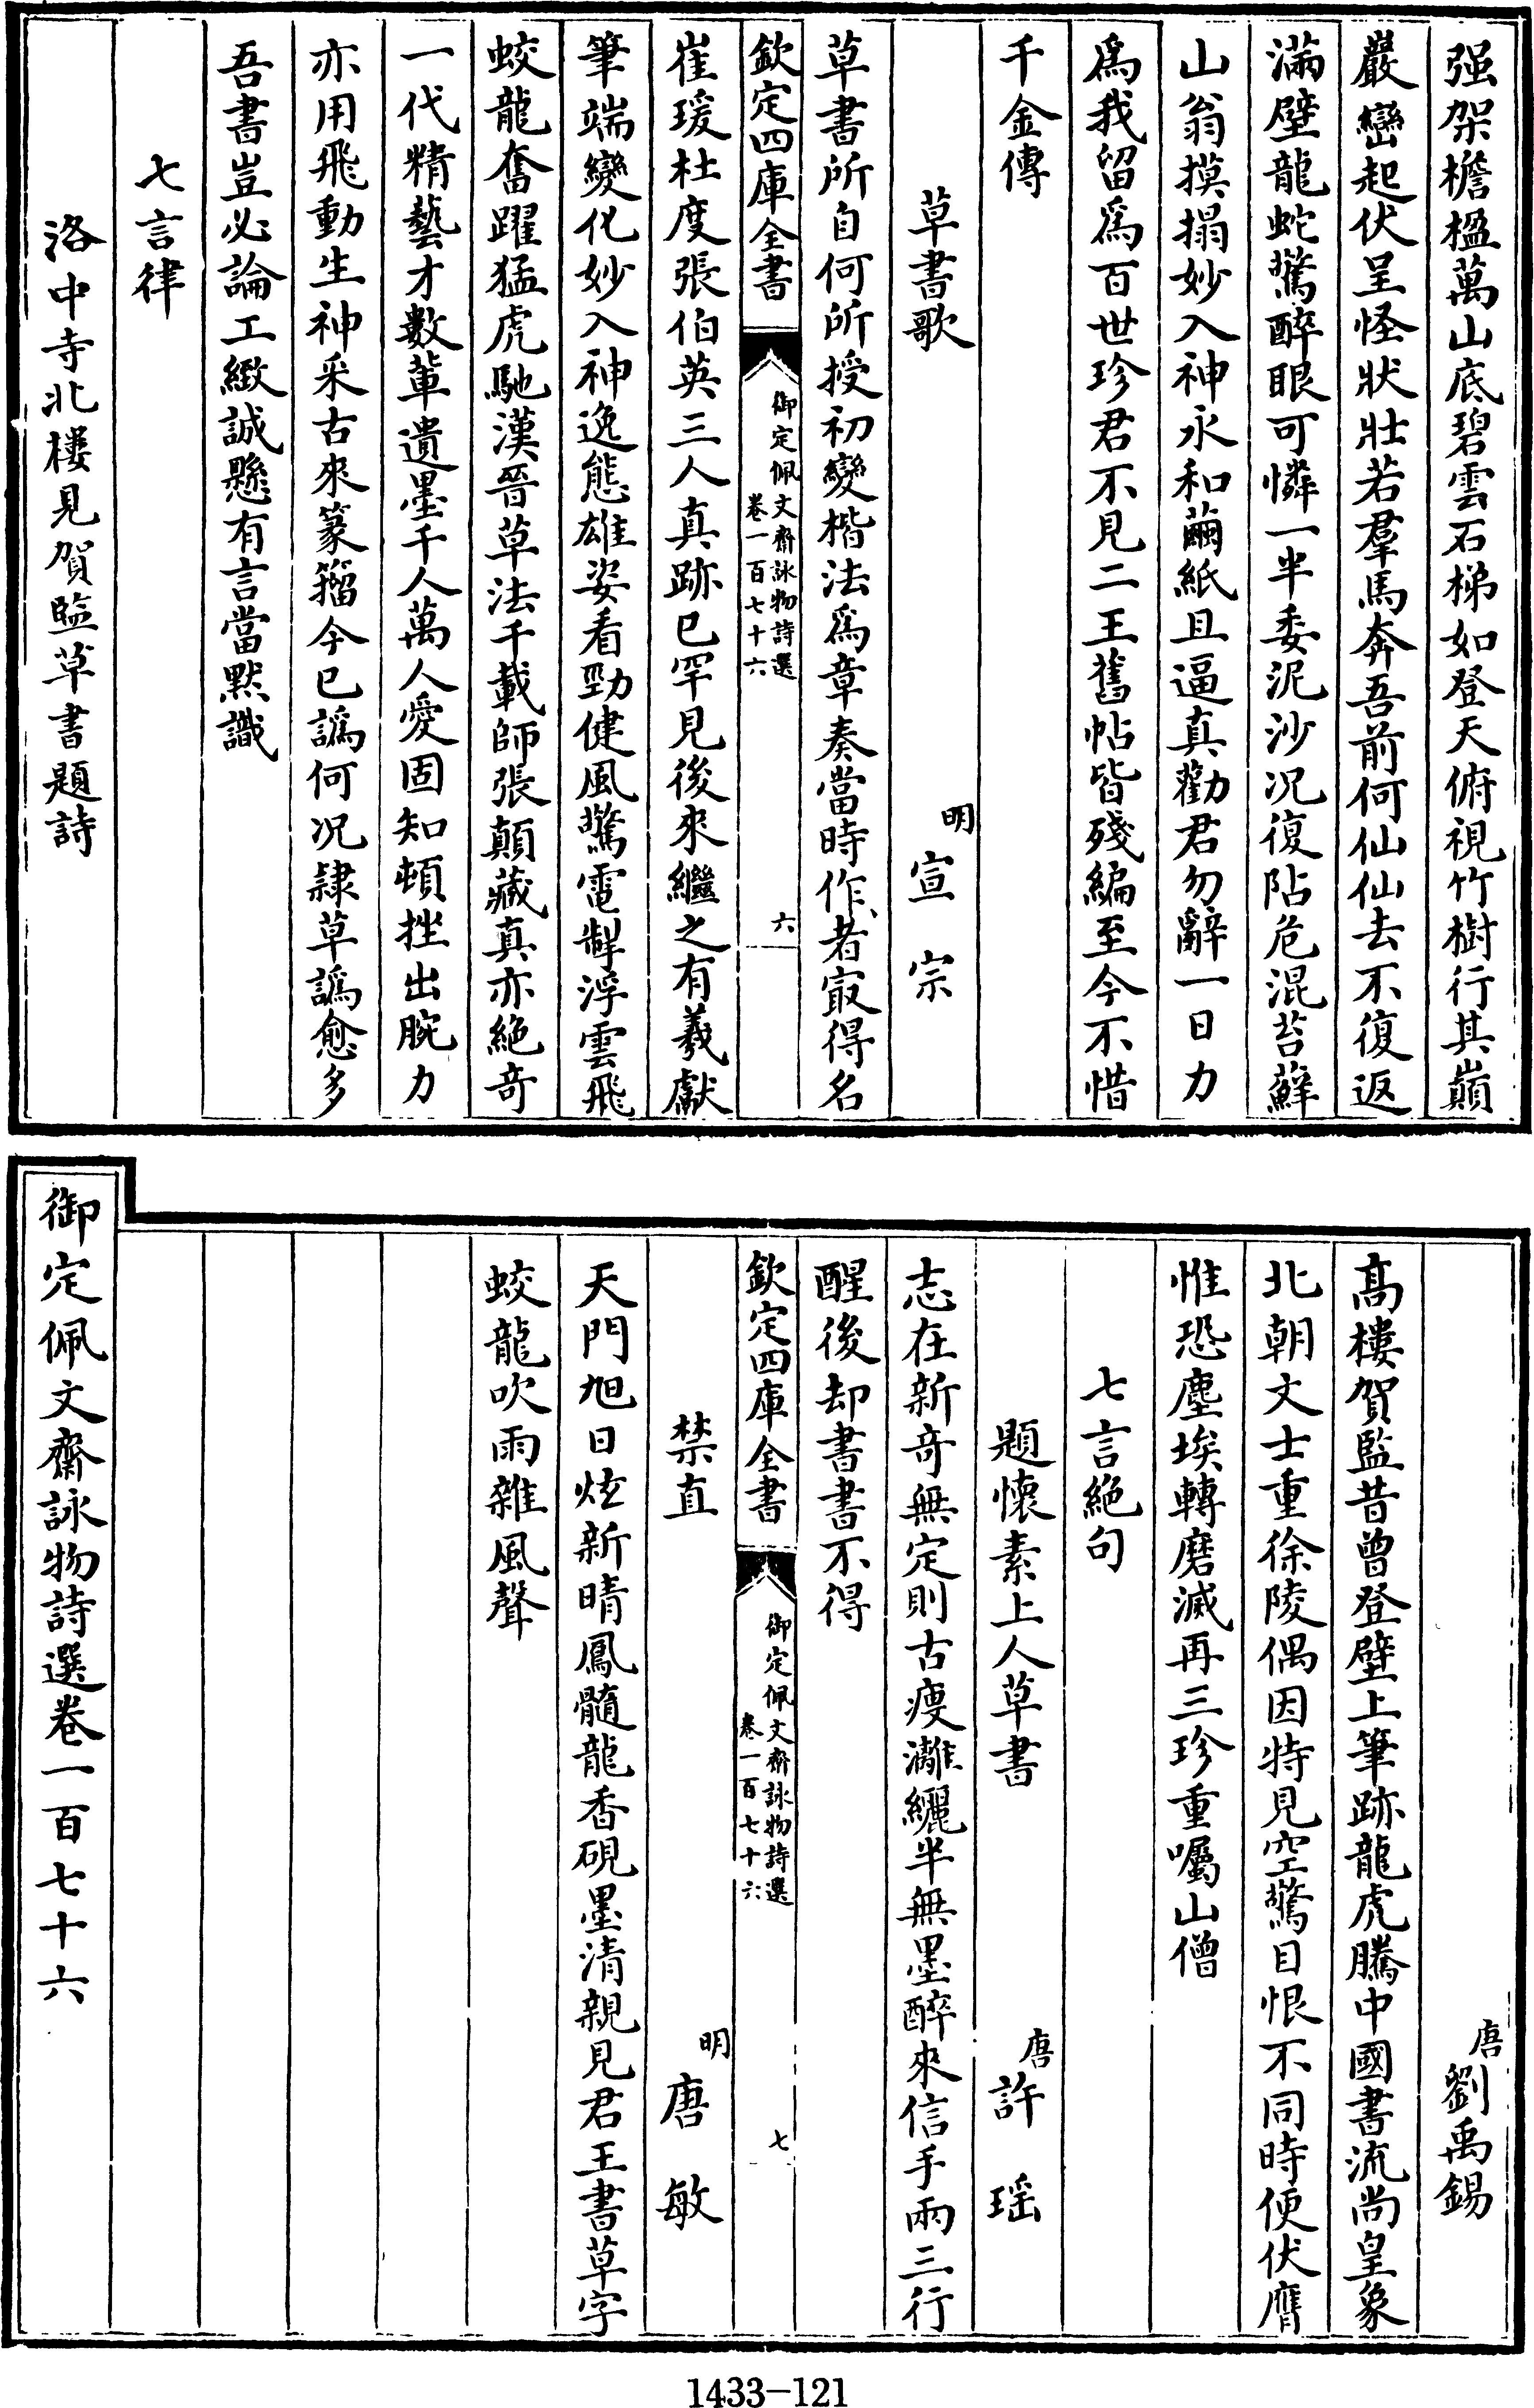 强架檐楹萬山底碧雲石梯如登天俯視竹樹行其巔
巖巒起伏呈怪狀壯若羣馬奔吾前何仙仙去不復返
滿壁龍蛇驚醉眼可憐一半委泥沙况復阽危混苔蘚
山翁摸搨妙入神永和繭紙且逼真勸君勿辭一日力
爲我留爲百世珍君不見二王舊帖皆殘編至今不惜
千金傳
草書歌
明宣宗
草書所自何所授初變楷法爲章奏當時作者㝡得名
欽定四庫全書
御定佩文齋詠物詩選
卷一百七十六
六
崔瑗杜度張伯英三人真跡已罕見後來繼之有羲獻
筆端變化妙入神逸態雄姿看勁健風驚電掣浮雲飛
蛟龍奮躍猛虎馳漢晉草法千載師張顛藏真亦絕奇
一代精藝才數輩遺墨千人萬人愛固知頓挫出腕力
亦用飛動生神采古來篆籀今已譌何况隸草譌愈多
吾書豈必論工緻誠懸有言當默識
七言律
洛中寺北樓見賀監草書題詩
唐劉禹錫
高樓賀監昔曾登壁上筆跡龍虎騰中國書流尚皇象
北朝文士重徐陵偶因特見空驚目恨不同時便伏膺
惟恐塵埃轉磨滅再三珍重囑山僧
七言絕句
題懷素上人草書
唐許瑶
志在新奇無定則古瘦灕纚半無墨醉來信手兩三行
醒後却書書不得
欽定四庫全書
御定佩文齋詠物詩選
卷一百七十六
七
禁直
明唐敏
天門旭日炫新晴鳳髓龍香硯墨清親見君王書草字
蛟龍吹雨雜風聲
御定佩文齋詠物詩選卷一百七十六
1433-121